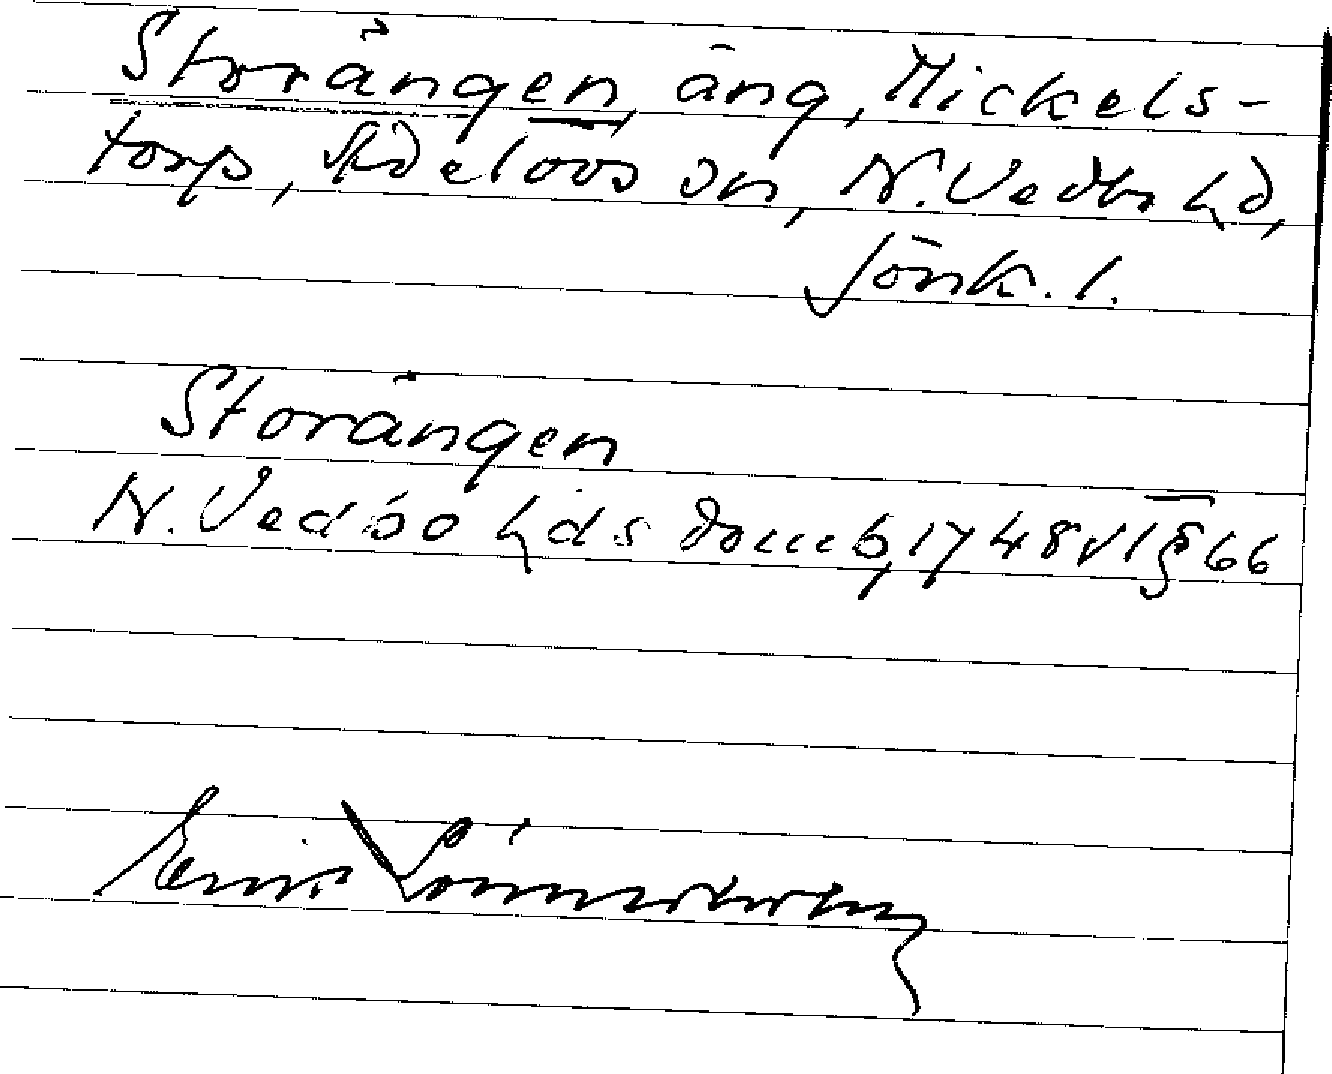 Storängen, äng, Mickels-
torp, Adelövs sn, N. Vedbo hd,
Jönk. l.
Storängen
N. Vedbo hds domb, 1748 VI § 66